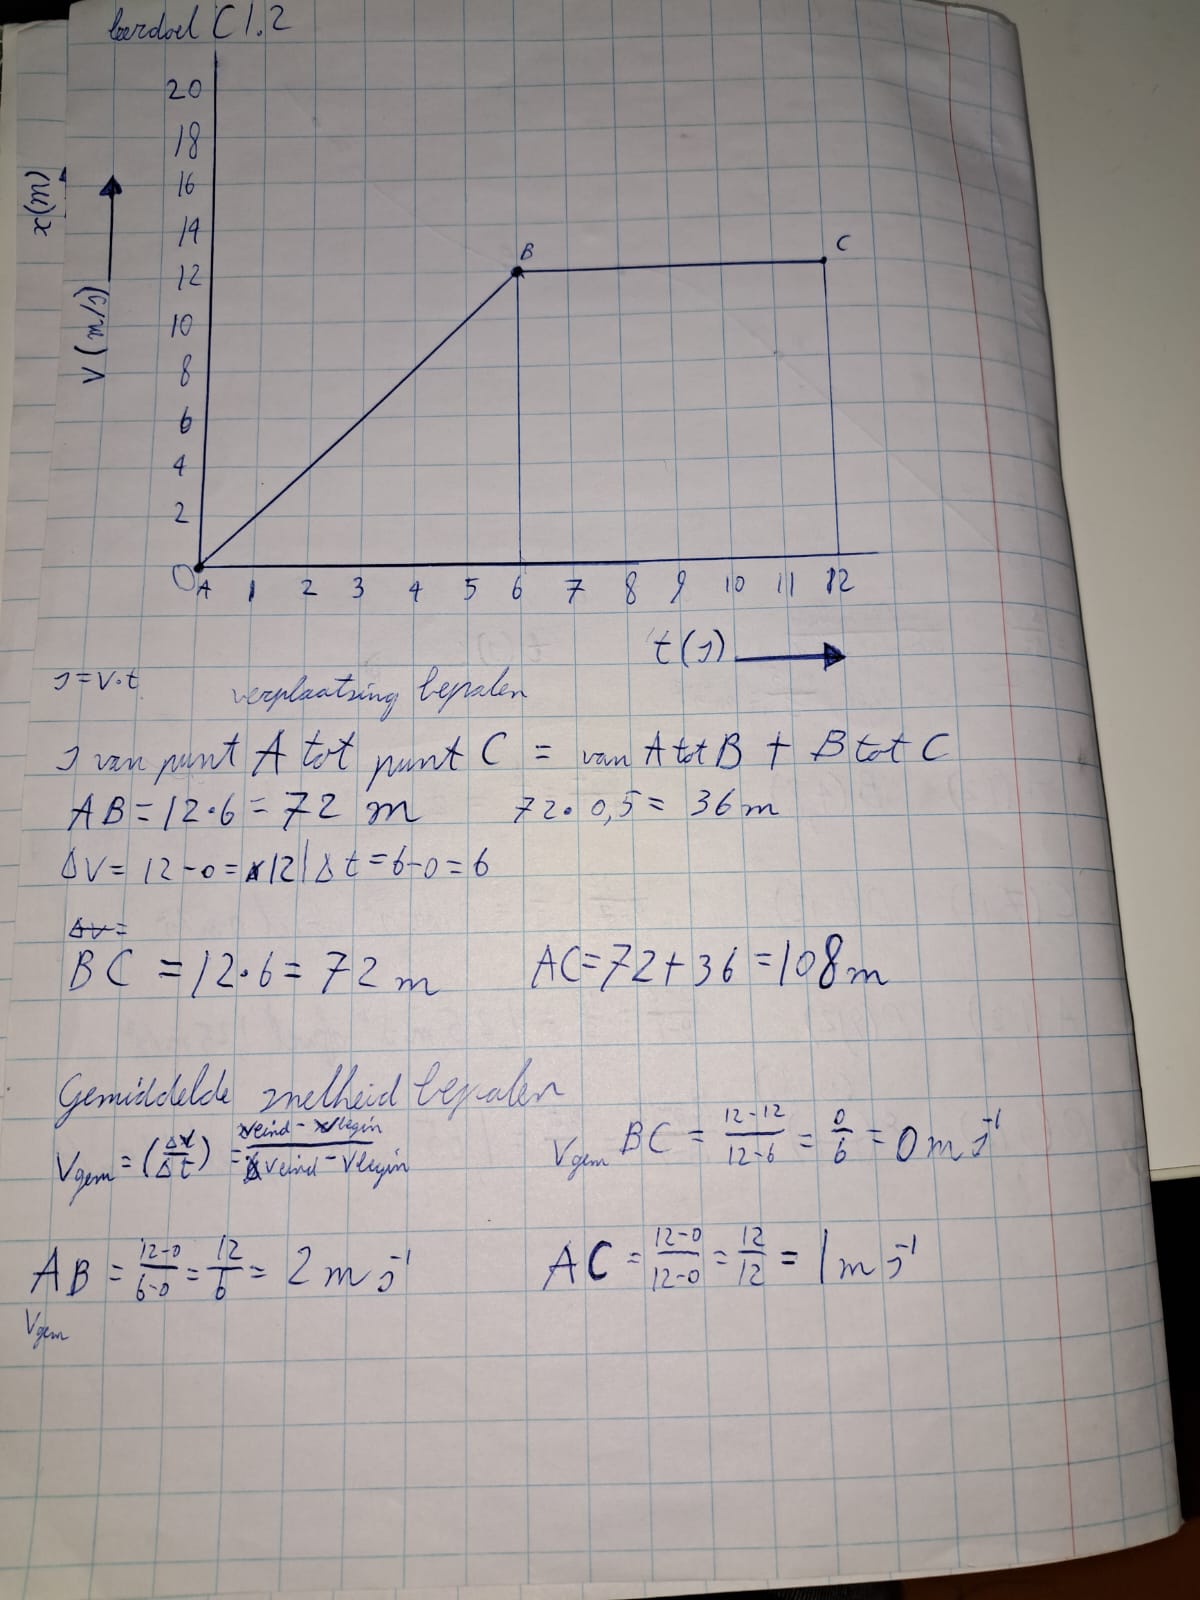 leerdoel C 1.2
20
18
16
14
12
10
8
6
4
2
0
x(m)
V (m/s)
B
C
A 1 2 3 4 5 6 7 8 9 10 11 12
t(s)
s=v·t verplaatsing bepalen
s van punt A tot punt C = van A tot B + B tot C
AB=12·6=72 m 72·0,5= 36m
ΔV= 12-0= 12 | Δt=6-0=6
Δv=
BC =12·6= 72 m AC=72+36=108m
Gemiddelde snelheid bepalen
Vgem=(Δx/Δt) = eind - begin / veind - Vbegin
Vgem BC = 12-12/12-6 = 0/6 = 0 m s⁻¹
AB = 12-0/6-0 = 12/6 = 2 m s⁻¹ AC = 12-0/12-0 = 12/12 = 1 m s⁻¹
Vgem